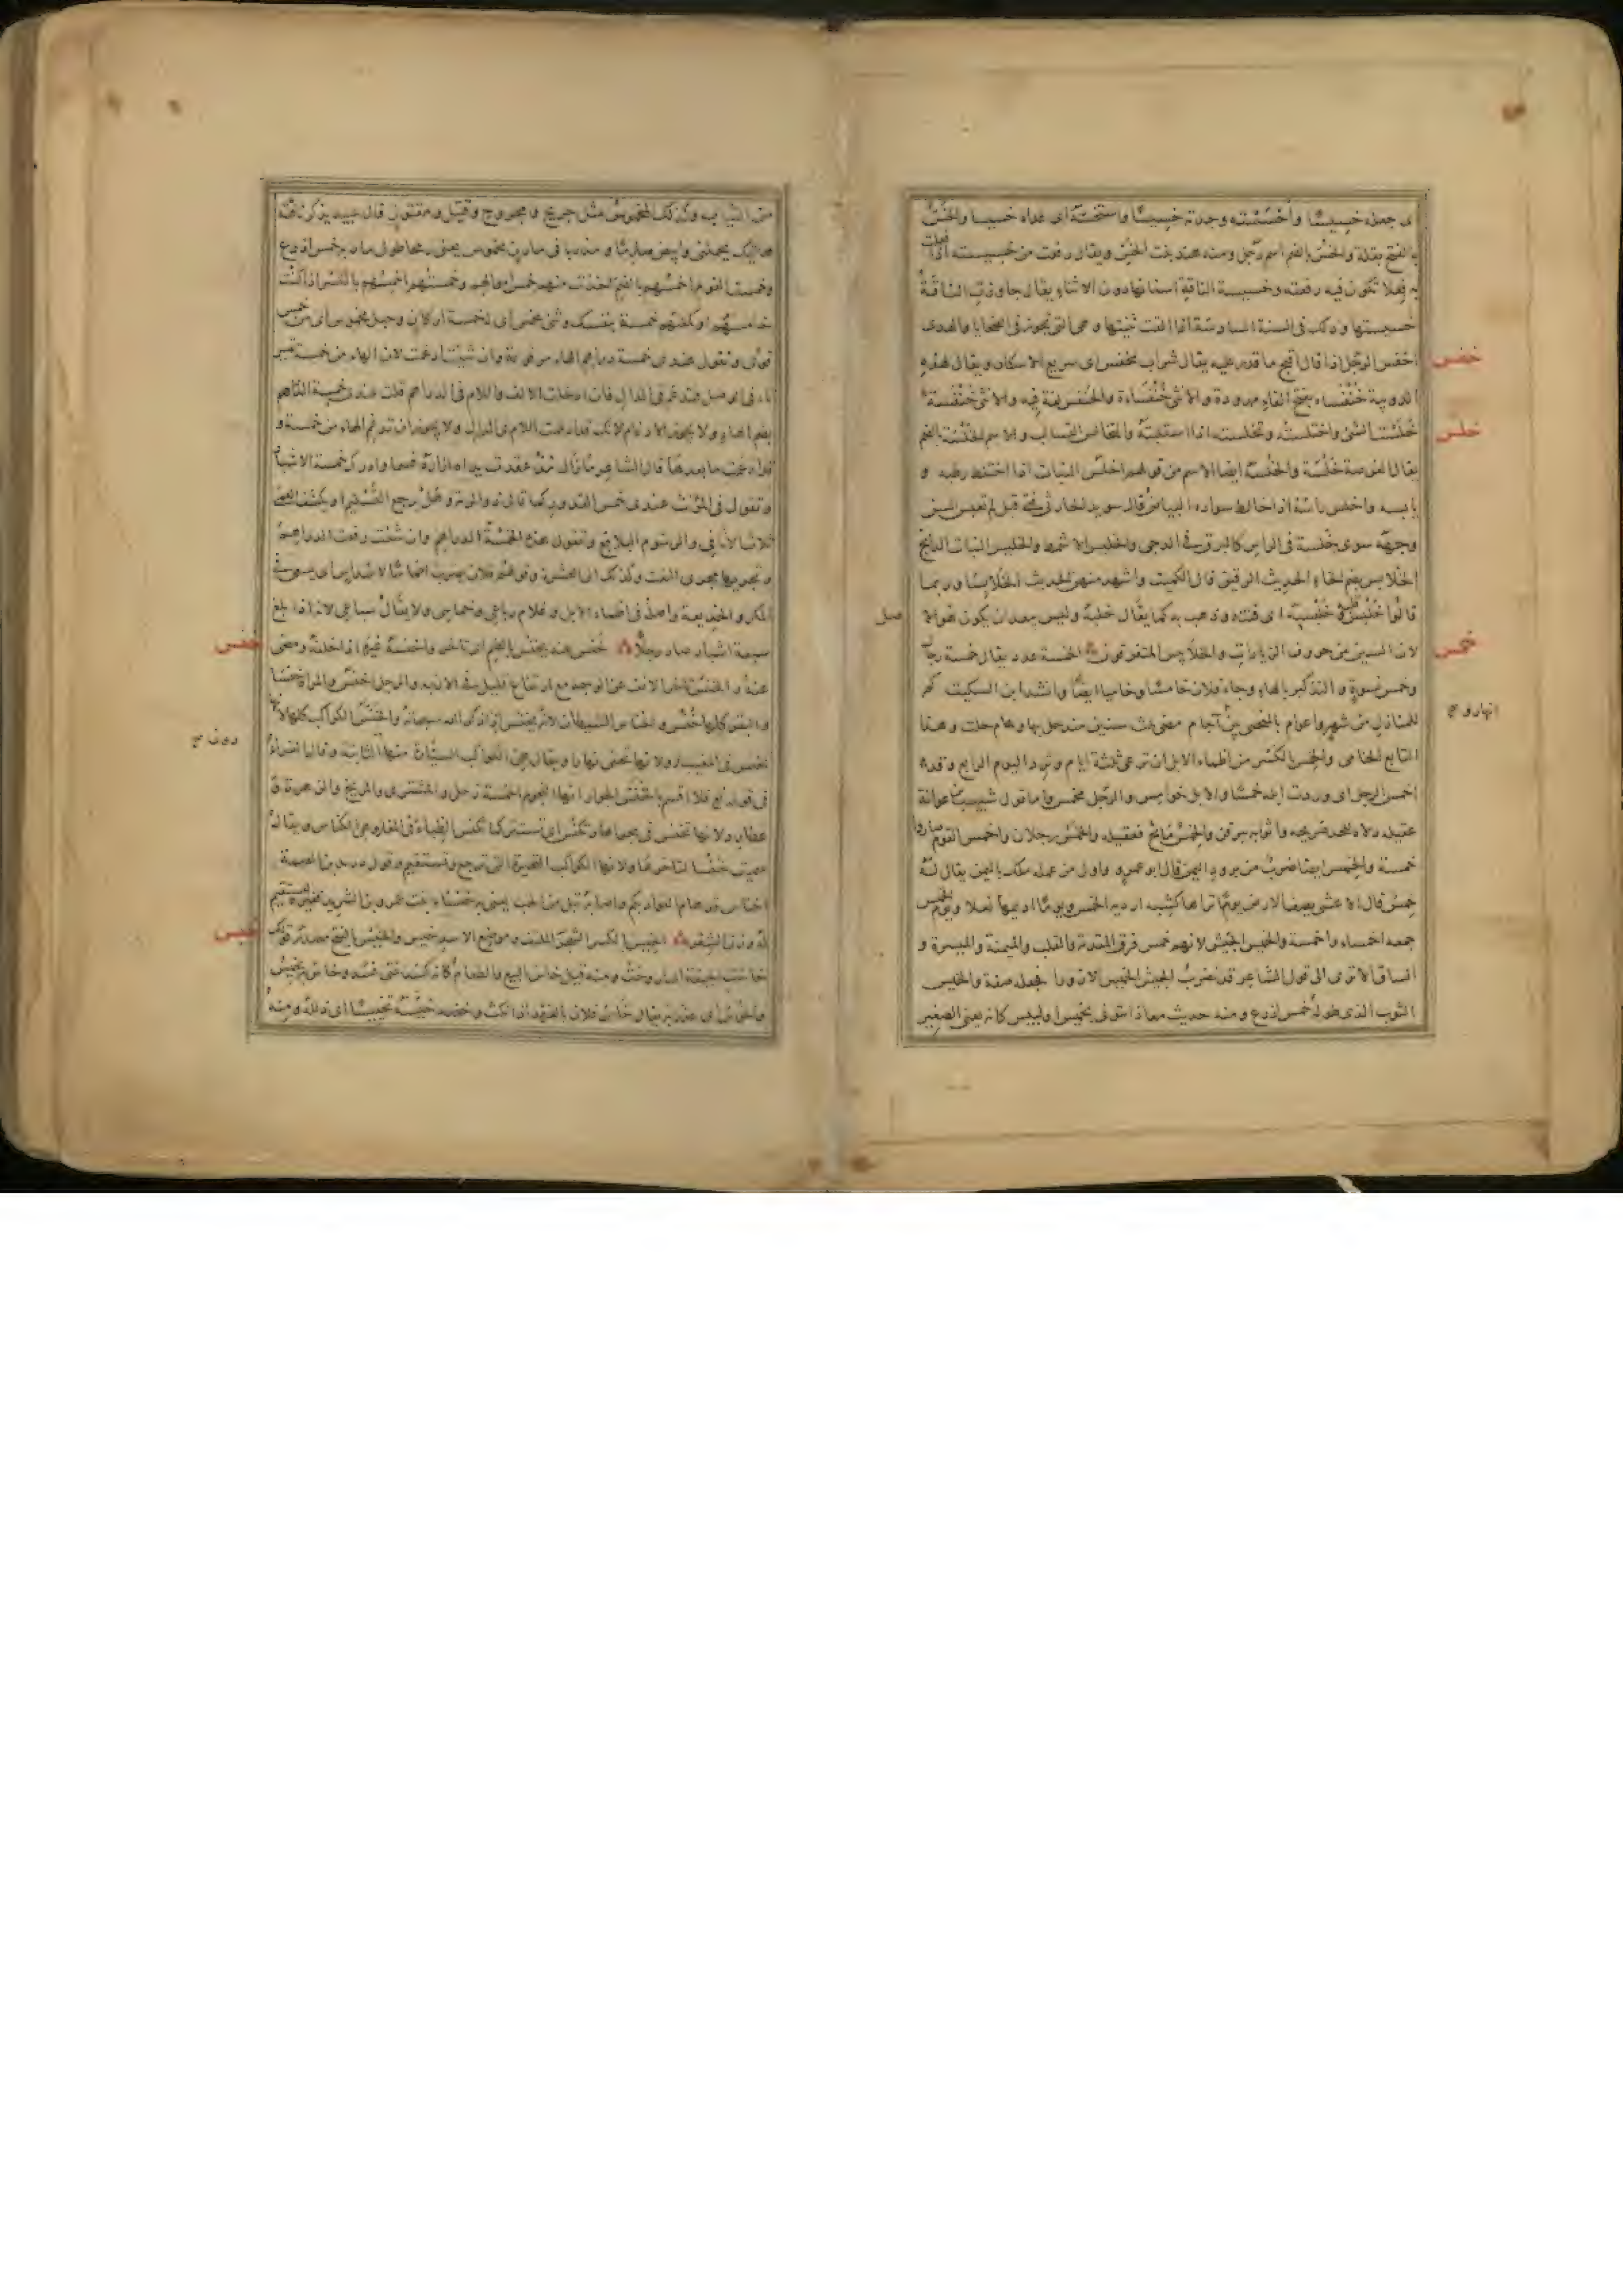 اى جعله خسيسًا وأخسسته وجدته خسيسًا واستخسّه اى عداه خسيسا والخسّ
بالفتح بقلة والخسّ بالضم اسم رجل ومنه هند بنت الخسّ ويقال رفعت من خسيسته اذا فعلت
به فعلا تكون فيه رفعته وخسيسة الناقة اسنانها دون الاثناء يقال جاوزت الناقة
خسيستها وذلك فى السنة السادسة اذا القت ثنيتها وهى التى تجوز فى الضحايا والهدى
خفس
اخفس الرجل اذا قال اقبح ما قدر عليه يقال شراب مخفس اى سريع الاسكار ويقال لهذه
الدويبة خنفساء بفتح الفاء ممدودة والانثى خنفساءة والخنفس لغة فيه والانثى خنفسة
خلس
خلست الشئ واختلسته وتخلسته اذا استلبته والتخالس التسالب والاسم الخلسة بالضم
يقال الفرصة خلسة والخلسة ايضا الاسم من قولهم اخلس النبات اذا اختلط رطبه و
يابسه واخلس راسه اذا خالط سواده البياض قال سويد الحارثى فتى قبل لم تعبس السن
وجهه سوى خلسة فى الراس كالبرق فى الدجى والخليس الاشمط والخليس النبات الهائج
الخلابيس بضم الخاء الحديث الرقيق قال الكميت واشهد منهن الحديث الخلابسا وربما
قالوا خلبس قلبه اى فتنه وذهب به كما يقال خلبه وليس يبعد ان يكون هو الا
صل
خمس
لان السين من حروف الزيادات والخلابيس المتفرقون الخمسة عدد يقال خمسة رجال
وخمس نسوة والتذكير بالهاء وجاء فلان خامسًا وخاميا ايضًا وانشد ابن السكيت كم
للمنازل من شهر واعوام بالمنحنى بين آجام مضى ثلث سنين منذ حل بها وعام حلت وهذا
انهار و ح
التابع الخامى والخمس بالكسر من اظماء الابل ان ترعى ثلثة ايام وترد اليوم الرابع وقد
اخمس الرجل اى وردت ابله خمسًا والابل خوامس والرجل مخمس واما قول شبيب بن عوانة
خمسة والخمس ايضا ضرب من برود اليمن قال ابو عمرو واول من عمله ملك باليمن يقال له
خمس قال الاعشى يصف الارض يومًا تراها كشبه اردية الخمس ويومًا اديمها نغلا ويوم الخميس
جمعه اخمساء واخمسة والخميس الجيش لانهم خمس فرق المقدمة والقلب والميمنة والميسرة و
الساق الا ترى الى قول الشاعر قد نضرب الجيش الخميس الازورا فجعله صفة والخميس
الثوب الذى طوله خمس اذرع ومنه حديث معاذ ائتونى بخميس او لبيس كانه يعنى الصغير
من الثياب وكذلك المخموس مثل جريح ومجروح وقتيل ومقتول قال عبيد يذكر ناقته
هاتيك تحملنى وابيض صارمًا ومذربا فى مارن مخموس يعنى رمحا طول مارنه خمس اذرع
وخمست القوم اخمسهم بالضم اخذت منهم خمس اموالهم وخمستهم اخمسهم بالكسر اذا كنت
خامسهم او كملتهم خمسة بنفسك وشئ مخمس اى له خمسة اركان وحبل مخموس اى من خمس
قوى وتقول عندى خمسة دراهم الهاء مرفوعة وان شئت ادغمت لان الهاء من خمسة تصير
تاء فى الوصل فتدغم فى الدال فان ادخلت الالف واللام فى الدراهم قلت عندى خمسة الدراهم
بضم الهاء ولا يجوز الادغام لانك قد ادغمت اللام فى الدال ولا يجوز ان تدغم الهاء من خمسة و
قد ادغمت ما بعدها قال الشاعر ما زال مذ عقدت يداه ازاره فسما وادرك خمسة الاشبار
وتقول فى المؤنث عندى خمس القدور كما قال ذو الرمة وهل يرجع التسليم او يكشف العمى
ثلاث الاثافى والرسوم البلاقع وتقول هذه الخمسة الدراهم وان شئت رفعت الدراهم
وتجريها مجرى النعت وكذلك الى العشرة وقولهم فلان يضرب اخماسًا لاسداس اى يسعى فى
المكر والخديعة واصله فى اظماء الابل وغلام رباعى وخماسى ولا يقال سباعى لانه اذا بلغ
خنس
سبعة اشبار صار رجلًا خنس عنه يخنس بالضم اى تاخر واخنسه غيره اذا خلفه ومضى
عنه والخنس تاخر الانف عن الوجه مع ارتفاع قليل فى الارنبة والرجل اخنس والمراة خنساء
والبقر كلها خنس والخناس الشيطان لانه يخنس اذا ذكر الله سبحانه والخنس الكواكب كلها لانها
تخنس فى المغيب ولانها تخفى نهارا ويقال هى الكواكب السيارة منها دون الثابتة وقال الفراء
فى قوله تع فلا اقسم بالخنس الجوار انها النجوم الخمسة زحل والمشترى والمريخ والزهرة و
عطارد لانها تخنس فى مجراها وتكنس اى تستتر كما تكنس الظباء فى المغار وهى الكناس ويقال
سميت خنسا لتاخرها لانها الكواكب المتحيرة التى ترجع وتستقيم وقول دريد بن الصمة
اخناس قد هام الفؤاد بكم واصابه تبل من الحب يعنى به خنساء بنت عمرو بن الشريد فغيره ليستقيم
خيس
له وزن الشعر الخيس بالكسر الشجر الملتف وموضع الاسد خيس والخيس بالفتح مصدر قولك
خاست الجيفة اى اروحت ومنه قيل خاس البيع والطعام كانه كسد حتى فسد وخاس به يخيس
ويخوس اى غدر به يقال خاس فلان بالعهد اذا نكث وخيسه تخييسًا اى ذلله ومنه